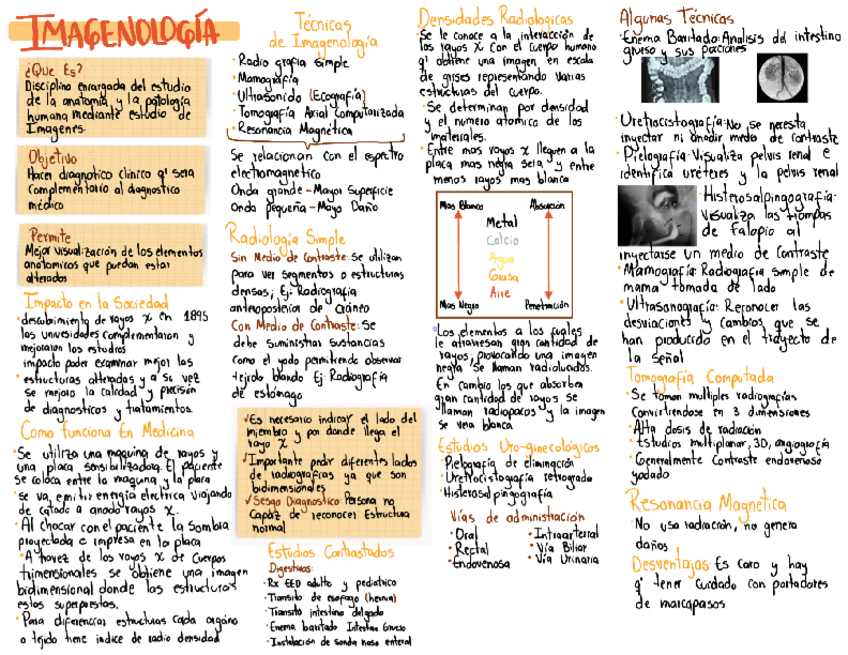 IMAGENOLOGÍA
¿Que Es?
Disciplina enrargada del estudio
de la anatomía y la patología
humana mediante estudio de
Imagenes.
Objetivo
Hacer diagnotico clinico q' sera
complementario al diagnostico
médico
Permite
Mejor visualización de los elementos
anatomicos que puedan estar
alterados
Impacto en la Sociedad
• descubrimiento de rayos x en 1895
las univesidades complementaron y
mejoraron los estudios
impacto poder examinar mejor las
• estructuras alteradas y a su vez
se mejoro la calidad y precisión
de diagnosticos y tratamientos.
Como funciona En Medicina
• Se utiliza una maquina de rayos y
una placa sensibilizadora. El paciente
se coloca entre la maquna y la placa
• se va emitir energia electrica viajando
de catodo a anodo rayos x.
• Al chocar con el paciente la Sombra
proyectada e impresa en la placa
• A travez de los rayos x de Cuerpos
trimensionales se obtiene una imagen
bidimensional donde las estructuras
estas superpuestas.
• Para diferencias estructuras Cada organo
o tejido tiene indice de radio densidad
Técnicas
de Imagenología
• Radio grafia simple
• Mamografía
• Ultrasonido (Ecografía)
• Tomografía Axial Computarizada
• Resonancia Magnética
Se relacionan con el espectro
electromagnetico
Onda grande - Mayor Superficie
Onda pequeña - Mayo Daño
Radiología Simple
Sin Medio de Contraste: Se utilizan
para ver segmentos o estructuras
densas; Ej: Radiografía
anteroposterior de Cráneo
Con Medio de Contraste: Se
debe suministras sustancias
Como el yodo permitiendo observar
tejido blando Ej: Radiografía
de estómago
✓Es necesario indicar el lado del
miembro y por donde llega el
rayo X
✓Importante pedir diferentes lados
de radiografias ya que son
bidimensionales
✓Sesgo Diagnostico: Persona no
Capaz de reconocer Estructura
normal
Estudios Contrastados
Digestivos:
• Rx EED adulto y pediatrico
• Transito de esofago (hernia)
• Transito intestino delgado
• Enema baritado Intestino Grueso
• Instalación de sonda naso enteral
Densidades Radiologicas
• Se le conoce a la interacción de
los rayos X con el cuerpo humano
q' obtiene una imagen en escala
de grises representando varias
estructuras del cuerpo.
• Se determinan por densidad
y el numero atomico de los
materiales.
• Entre mas rayos x lleguen a la
placa mas negra sera y entre
menos rayos mas blanca
Mas Blanco Absorción
Metal
Calcio
Agua
Grasa
Aire
Mas Negro Penetración
Los elementos a los cuales
le atraviesan gran cantidad de
rayos, provocando una imagen
negra se llaman radiolucidos.
En cambio los que absorben
gran cantidad de rayos se
llaman radiopacos y la imagen
se vera blanca
Estudios Uro-ginecológicos
• Pielografía de eliminación
• Uretrocistografia retrograda
• Histerosalpingografía
Vías de administración
• Oral
• Rectal
• Endovenosa
• Intraarterial
• Vía Biliar
• Vía Urinaria
Algunas Técnicas
• Enema Baritado: Analisis del intestino
grueso y sus porciones
• Uretrocistografía: No se necesita
inyectar ni añadir medio de contraste
• Pielografía: Visualiza pelvis renal e
identifica uréteres y la pelvis renal
• Histerosalpingografía:
Visualiza las trompas
de falopio al
inyectarse un medio de Contraste
• Mamografía: Radiografia simple de
mama tomada de lado
• Ultrasonografía: Reconocer las
desviaciones y cambios que se
han producido en el trayecto de
la señal
Tomografía Computada
• Se toman multiples radiografías
Convirtiendose en 3 dimensiones
• Alta dosis de radiación
• Estudios multiplanar, 3D, angiografía
• Generalmente Contraste endovenoso
yodado
Resonancia Magnetica
• No usa radiación, no genera
daños
Desventajas: Es caro y hay
q' tener Cuidado con portadores
de marcapasos